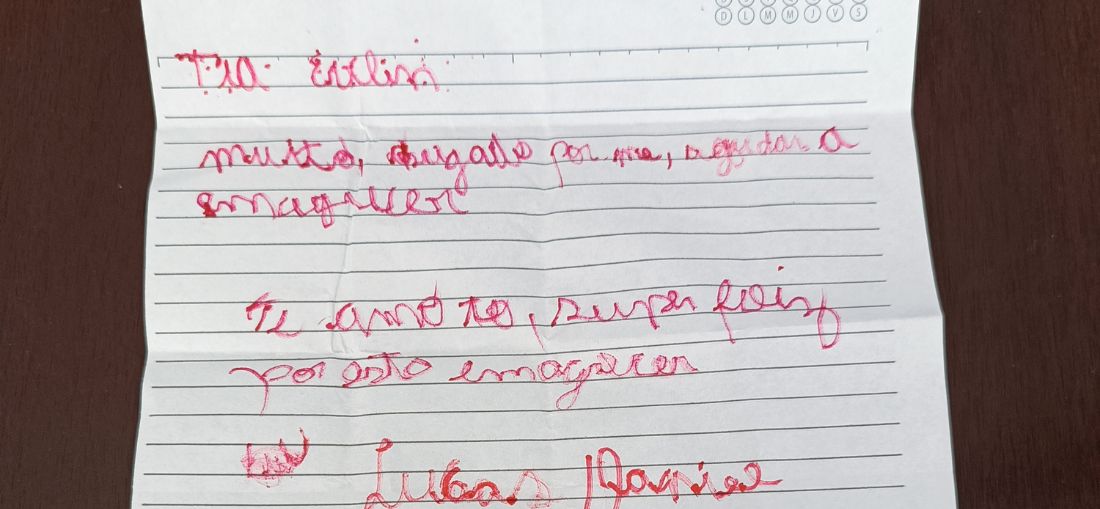 D L M M J V S
Tia Evelin
muito, obrigado por me, ajudar a
emagrecer
Te amo to, super feliz
por esto emagrecer
Lucas Daniel